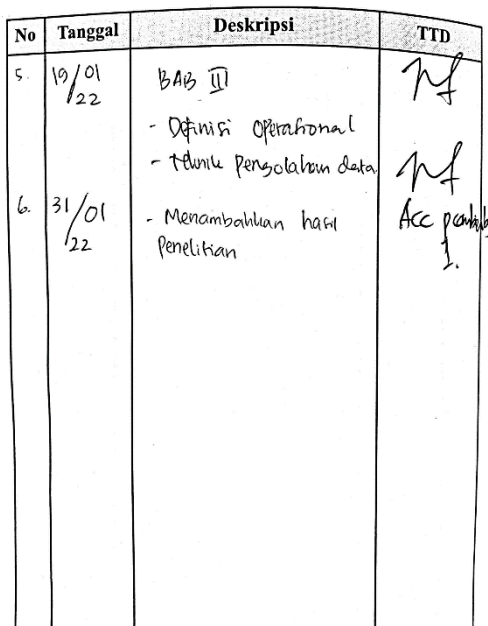 No Tanggal Deskripsi TTD
5. 19/01/22 BAB III
- Definisi Operasional
- teknik pengolahan data
6. 31/01/22 - Menambahkan hasil
Penelitian
Acc pembimbing
1.